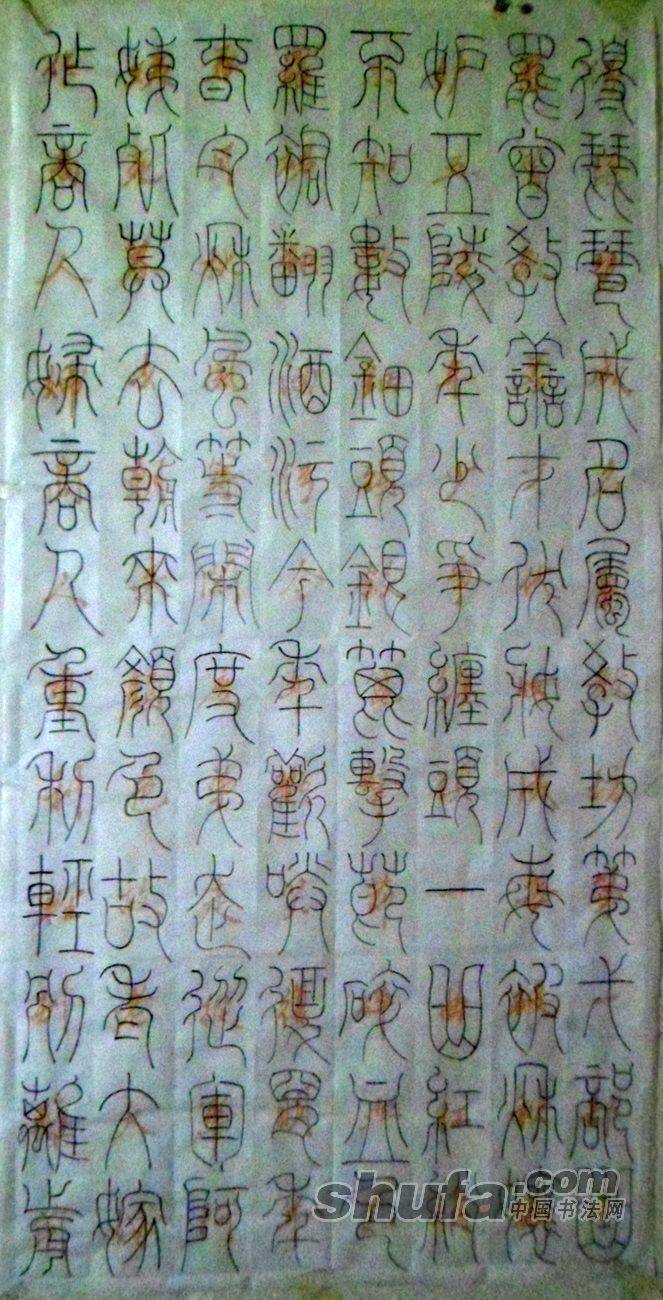 得琵琶成名屬教坊第弌部曲
罷曾教善才伏妝成每被秋娘
妒五陵年少爭纏頭一曲紅綃
不知數鈿頭銀篦擊節碎血色
羅裙翻酒污今年歡笑復明年
春月秋風等閒度弟走從軍阿
姨死暮去朝來顏色故老大嫁
作商人婦商人重利輕別離前
shufa.com
中国书法网